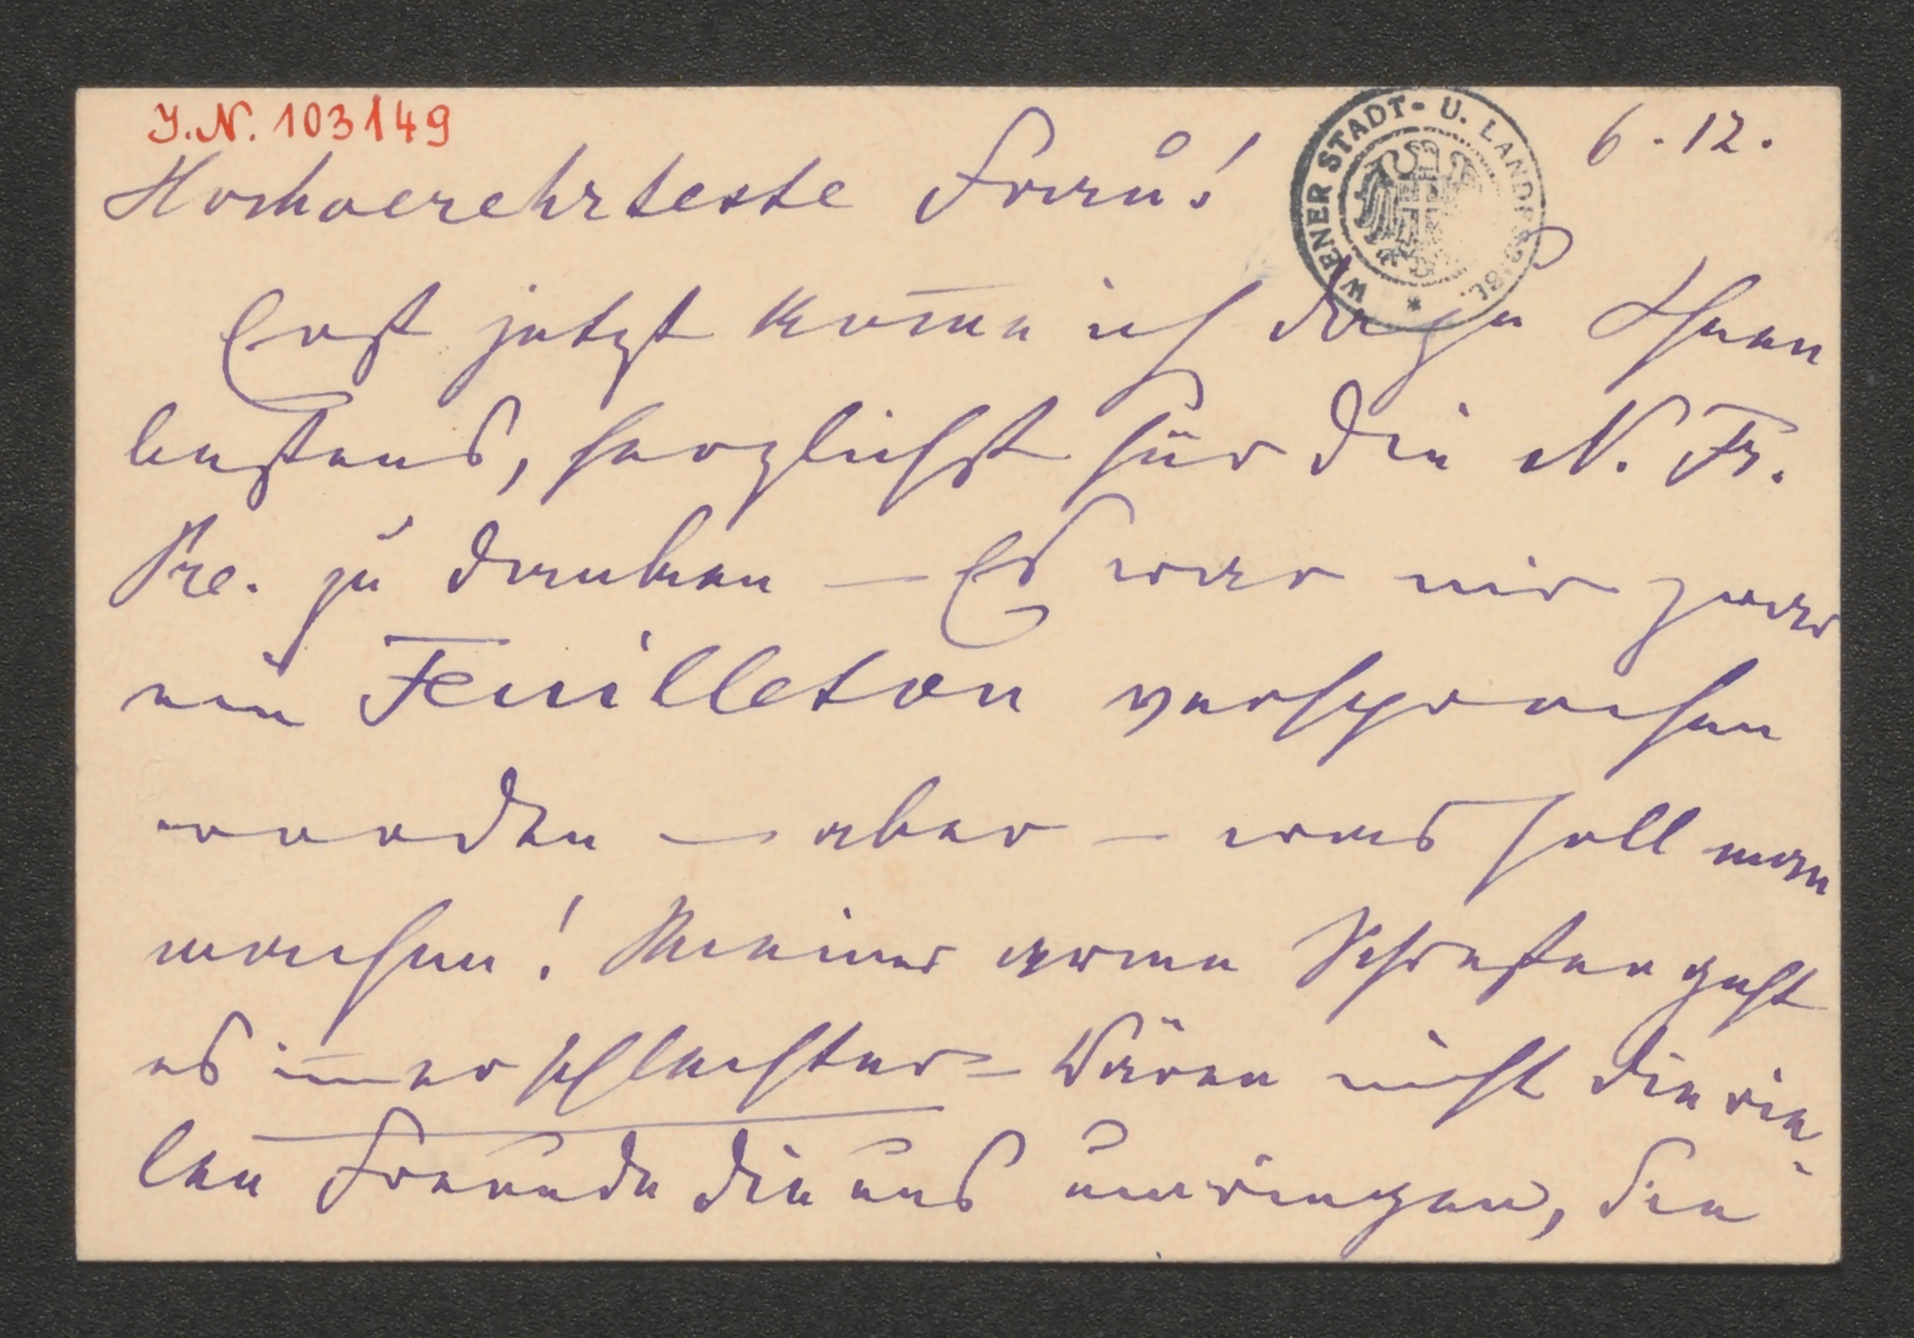 J.N. 103149
WIENER STADT- U. LANDESBIBL.
6.12.
Hochverehrteste Frau!
Erst jetzt kom̅e ich dazu Ihnen
bestens, herzlichst für die N. Fr.
Pre. zu danken — Es war mir zwar
ein Feuilleton versprochen
worden — aber — was soll man
machen! Meiner armen Schwester geht
es im̅er schlechter — Wären nicht die vie-
len Freunde die uns umringen, die